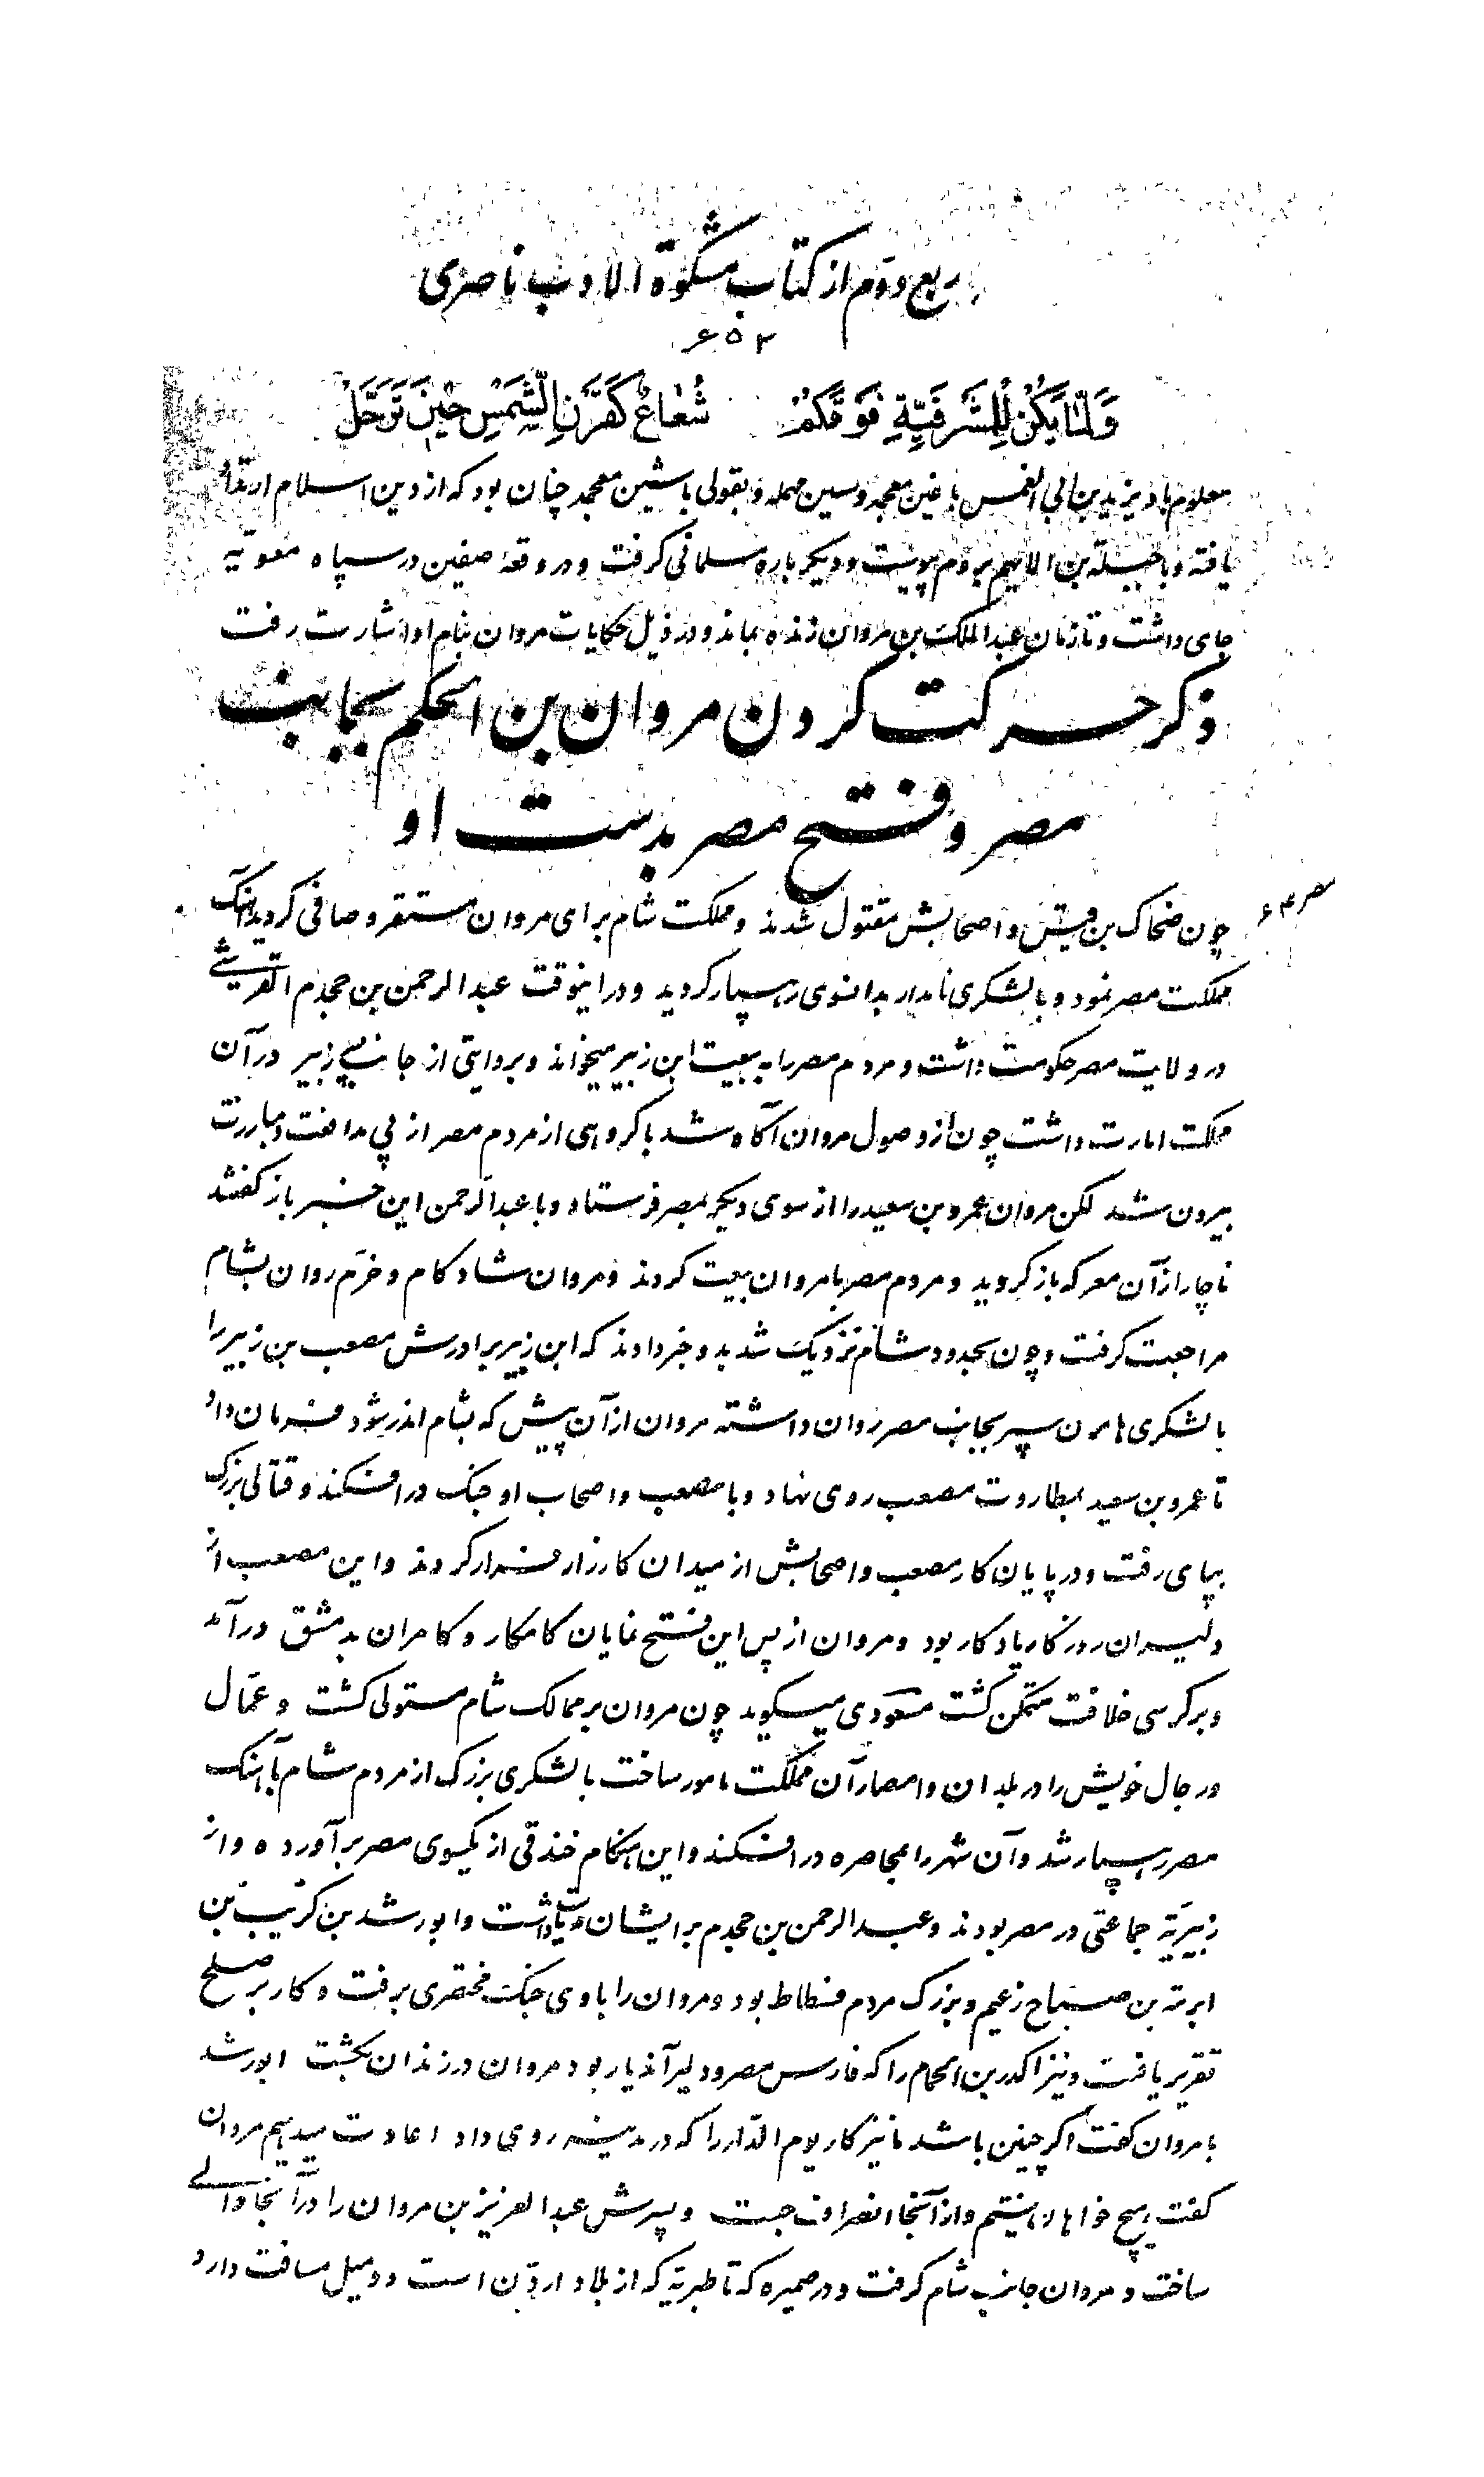 ربع دوّم از کتاب مشکوة الادب ناصری
۶۵۲
وَلَمّا یَکُنْ لِلْمَشْرَفِیَّةِ فَوْقَکُمْ شُعاعٌ کَقَرْنِ الشَّمْسِ حینَ تَرَحَّلُ
معلوم باد یزید بن ابی الغمس با غین معجمه و سین مهمله و بقولی با شین معجمه چنان بود که از دین اسلام ارتداد
یافته و با جبلة بن الایهم بروم پیوست و دیگر باره مسلمانی گرفت و در وقعهٔ صفین در سپاه معویّه
جای داشت و تا زمان عبدالملک بن مروان زنده بماند و در ذیل حکایات مروان بنام او اشارت رفت
ذکر حرکت کردن مروان بن الحکم بجانب
مصر و فتح مصر بدست او
چون ضحاک بن قیس و اصحابش مقتول شدند و مملکت شام برای مروان مستقر و صافی گردید آهنگ
مملکت مصر نمود و با لشکری نامدار بدانسوی رهسپار گردید و در اینوقت عبدالرحمن بن جحدم القرشی
در ولایت مصر حکومت داشت و مردم مصر را به بیعت ابن زبیر میخواند و بروایتی از جانب زبیر در آن
مملکت امارت داشت چون از وصول مروان آگاه شد با گروهی از مردم مصر از پی مدافعت و مبارزت
بیرون شد لکن مروان عمرو بن سعید را از سوی دیگر بمصر فرستاد و با عبدالرحمن این خبر باز گفتند
ناچار از آن معرکه باز گردید و مردم مصر با مروان بیعت کردند و مروان شادکام و خرّم روان بشام
مراجعت گرفت و چون بحدود شام نزدیک شد بدو خبر دادند که ابن زبیر برادرش مصعب بن زبیر را
با لشکری هامون سپر بجانب مصر روان داشته مروان از آن پیش که بشام اندر شود فرمان داد
تا عمرو بن سعید بمطاردت مصعب روی نهاد و با مصعب و اصحاب او جنگ در افکند و قتالی بزرگ
بپای رفت و در پایان کار مصعب و اصحابش از میدان کارزار فرار کردند و این مصعب از
دلیران روزگار یادگار بود و مروان از پس این فتح نمایان کامکار و کامران بدمشق در آمد
و بر کرسی خلافت متمکن گشت مسعودی میگوید چون مروان بر ممالک شام مستولی گشت و عمّال
و رجال خویش را در بلدان و امصار آن مملکت مامور ساخت با لشکری بزرگ از مردم شام بآهنگ
مصر رهسپار شد و آن شهر را بمحاصره در افکند و این هنگام خندقی از یکسوی مصر برآورده و از
زبیریّه جماعتی در مصر بودند و عبدالرحمن بن جحدم بر ایشان ریاست داشت و ابو رشد بن کریب بن
ابرهة بن صباح زعیم و بزرگ مردم فسطاط بود و مروان را با وی جنگ مختصری برفت و کار بر صلح
تقریر یافت و نیز اکدر بن الحمام را که فارس مصر و دلیر آندیار بود مروان در زندان بکشت ابو رشد
با مروان گفت اگر چنین باشد ما نیز کار یوم الدّار را که در مدینه روی داد اعادت میدهیم مروان
گفت هیچ خواهان نیستم و از آنجا انصراف جست و پسرش عبدالعزیز بن مروان را در آنجا والی
ساخت و مروان جانب شام گرفت و در صمیره که تا طبریّه که از بلاد اردن است دو میل مسافت دارد